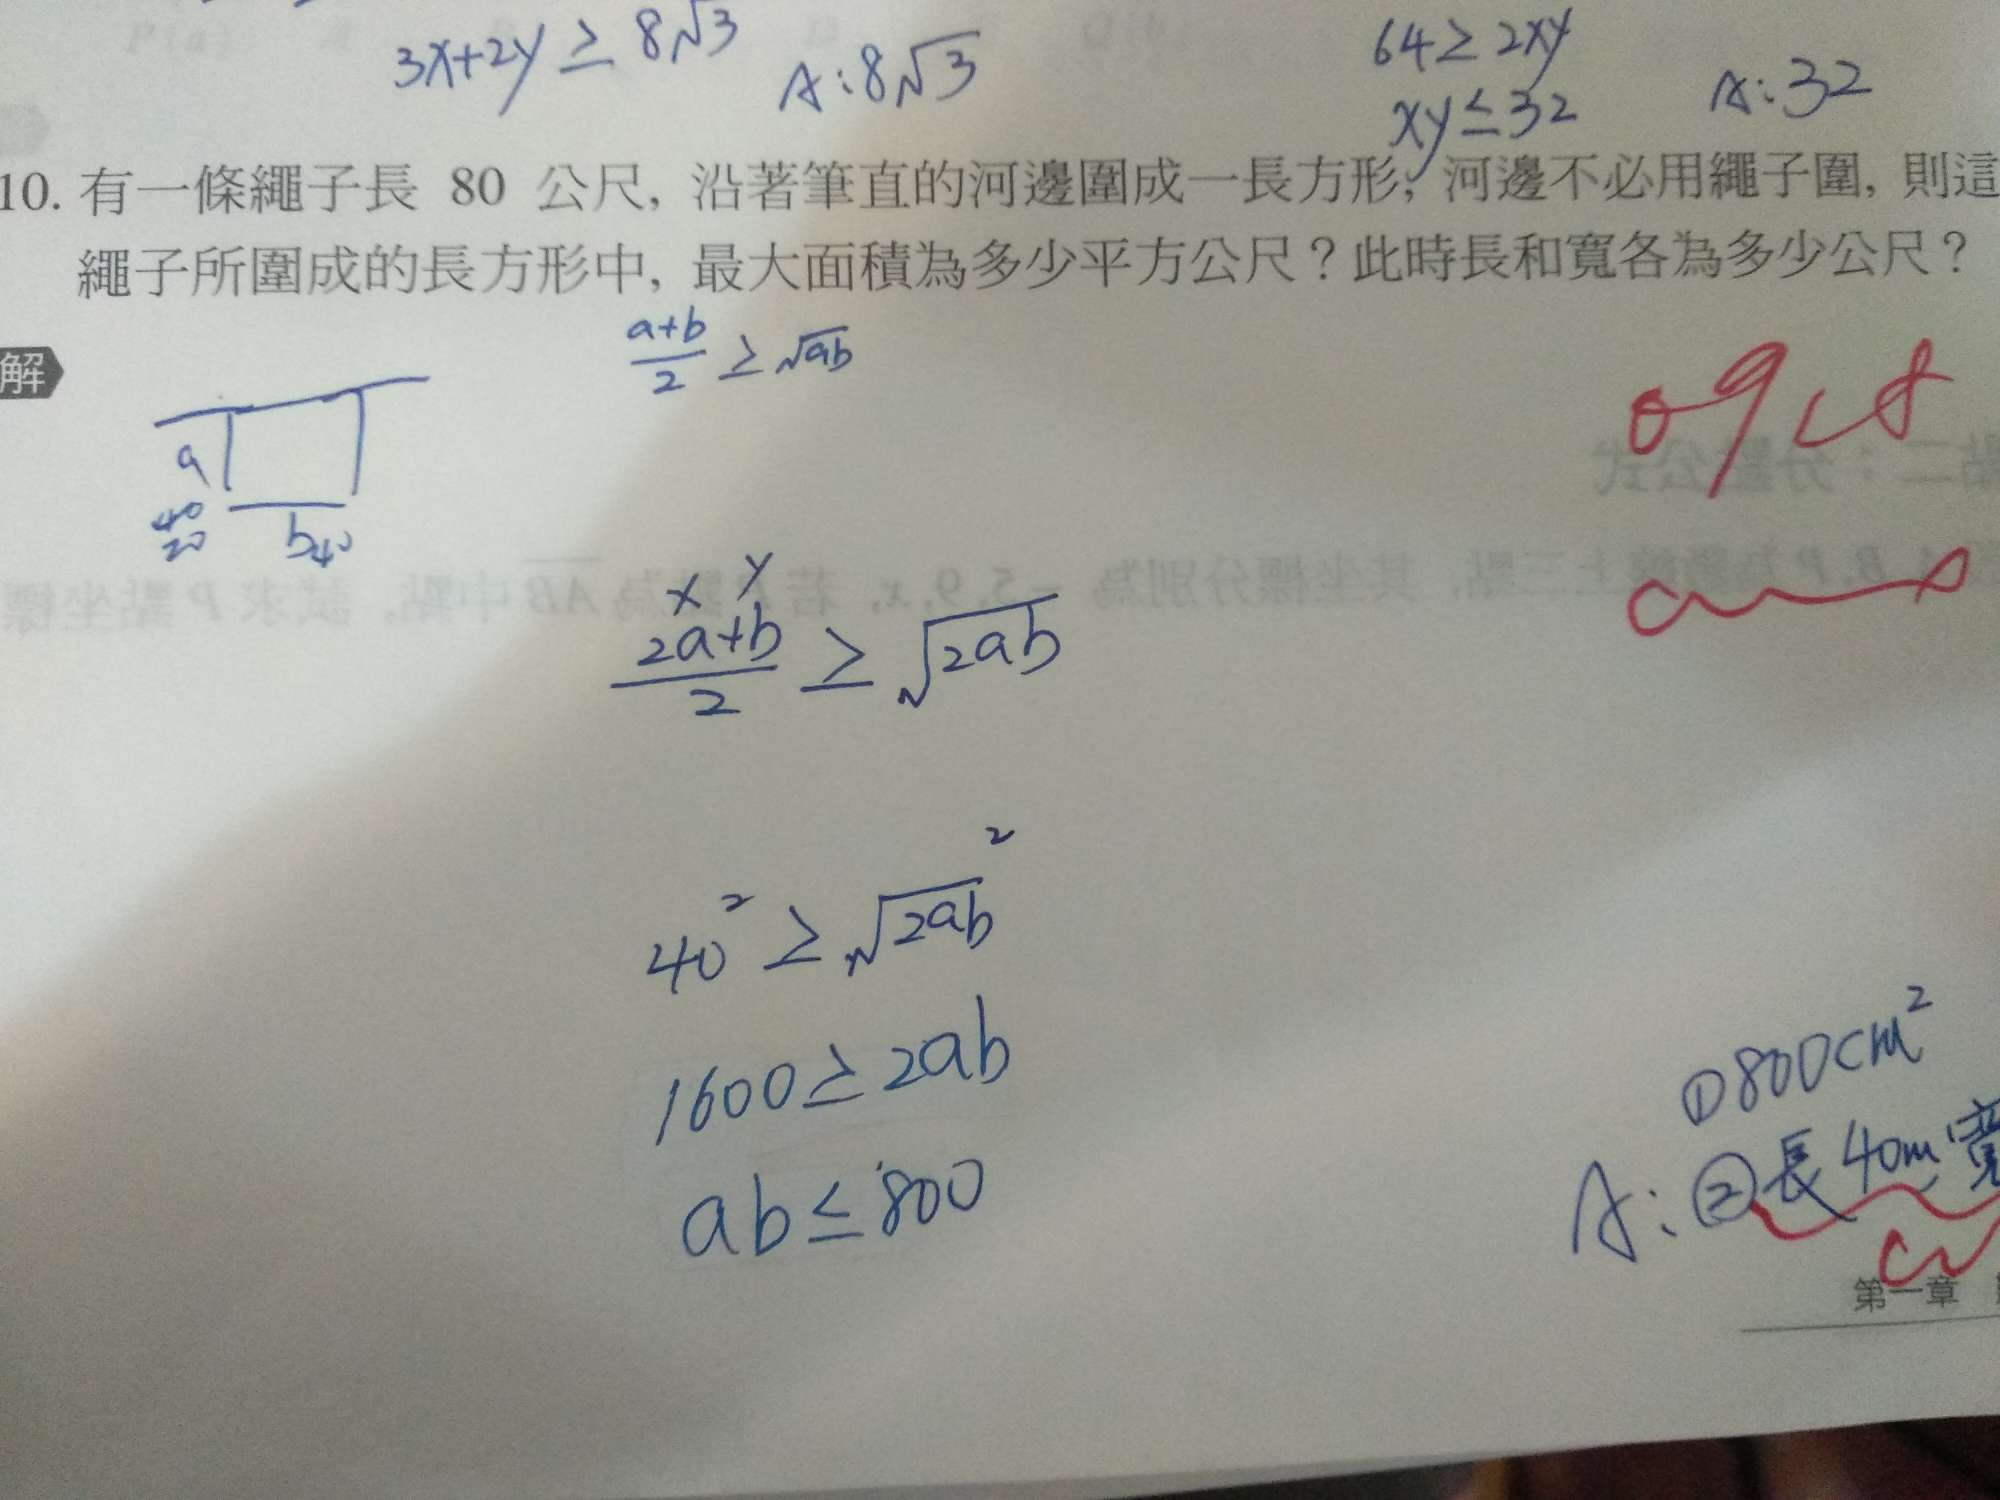 3x+2y ≥ 8√3
A:8√3
64 ≥ 2xy
xy ≤ 32
A:32
10. 有一條繩子長 80 公尺, 沿著筆直的河邊圍成一長方形, 河邊不必用繩子圍, 則這
繩子所圍成的長方形中, 最大面積為多少平方公尺？此時長和寬各為多少公尺？
解
a+b/2 ≥ √ab
a
40
20
b40
x y
2a+b/2 ≥ √2ab
40² ≥ √2ab²
1600 ≥ 2ab
ab ≤ 800
①800cm²
A:②長40m寬
第一章